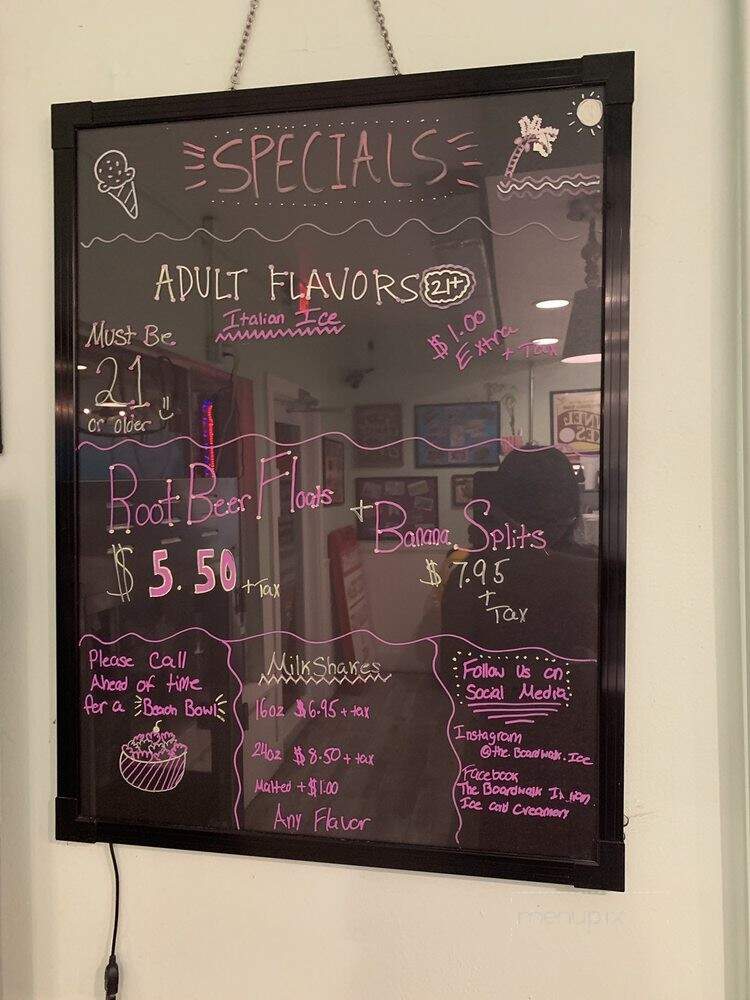 SPECIALS
ADULT FLAVORS 21+
Italian Ice
$1.00
Extra
+ Tax
Must Be
21
or older
Root Beer Floats
$5.50 + Tax
+ Banana Splits
$7.95
+
Tax
Please Call
Ahead of time
for a Beach Bowl
MilkShakes
16oz $6.95 + tax
24oz $8.50 + tax
Malted + $1.00
Any Flavor
Follow Us on
Social Media
Instagram
@the.Boardwalk.Ice
Facebook
The Boardwalk
Ice and Creamery
menupix